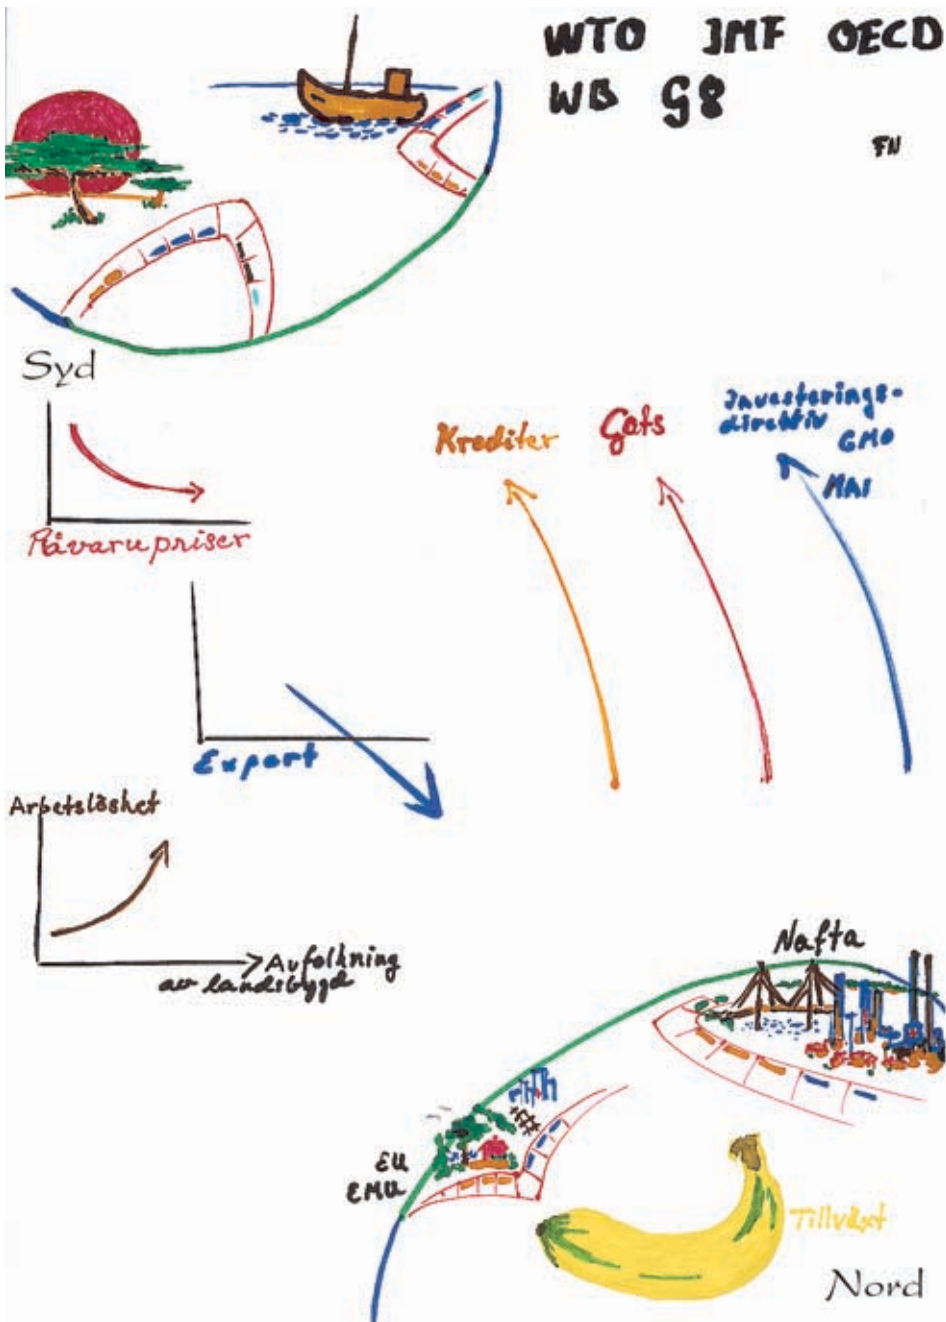 WTO IMF OECD
WB G8
FN
Syd
Råvarupriser
Krediter
Gats
Investerings-
direktiv
GMO
MAI
Export
Arbetslöshet
Avfolkning
av landsbygd
Nafta
EU
EMU
Tillväxt
Nord